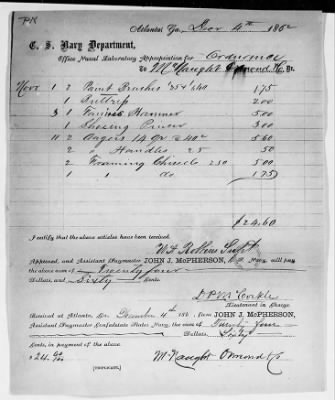 Atlanta Ga, Dec 4th 1862
C. S. Navy Department,
Office Naval Laboratory Appropriation for Ordnance
To McNaught Ormond & Co Dr.
Novr 1 2 Paint Brushes 175
1 200
3 1 Hammer 500
1 Shoeing 300
11 2 Augers 14 qr 40c 560
2 " Handles 25 50
2 Framing Chisels 250 500
1 " do. 175
$24.60
I certify that the above articles have been received.
W. H. Supt
Approved, and Assistant Paymaster JOHN J. McPHERSON, C. S. Navy will pay
the above sum of Twenty four
Dollars, and Sixty Cents.
D. P. McCorkle
Lieutenant in Charge.
Received at Atlanta, Ga. December 4th 186 , from JOHN J. McPHERSON,
Assistant Paymaster Confederate States Navy, the sum of Twenty four
Dollars, Sixty
$24.60 McNaught Ormond & Co
(DUPLICATE.)